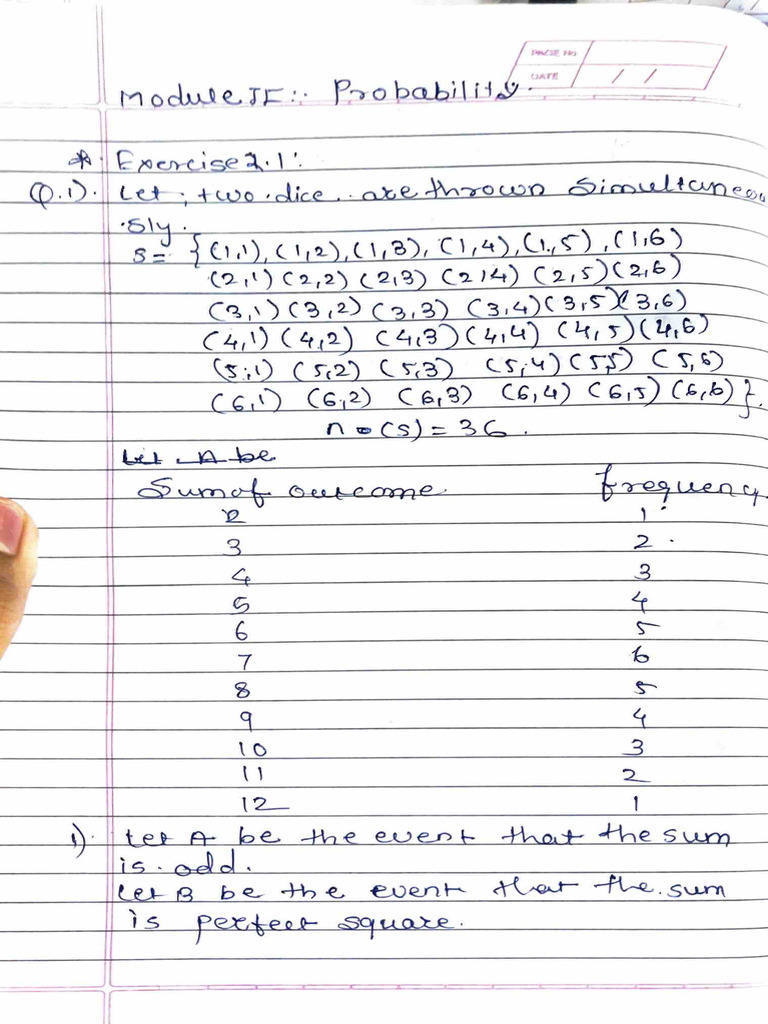 PAGE NO
DATE / /
Module II:. Probability.
* Exercise 2.1:
Q.1). Let ; two dice are thrown Simultaneou
sly.
S= {(1,1), (1,2), (1,3), (1,4), (1,5), (1,6)
(2,1) (2,2) (2,3) (2,4) (2,5) (2,6)
(3,1) (3,2) (3,3) (3,4) (3,5) (3,6)
(4,1) (4,2) (4,3) (4,4) (4,5) (4,6)
(5,1) (5,2) (5,3) (5,4) (5,5) (5,6)
(6,1) (6,2) (6,3) (6,4) (6,5) (6,6)}.
n (S) = 36.
Let A be
Sum of outcome. frequency
2 1
3 2
4 3
5 4
6 5
7 6
8 5
9 4
10 3
11 2
12 1
1). Let A be the event that the sum
is odd.
Let B be the event that the sum
is perfect square.